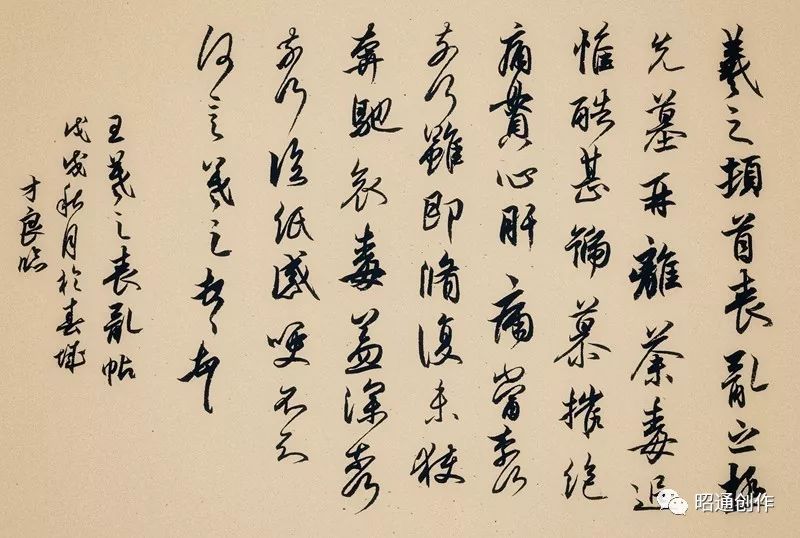 羲之頓首喪亂之極
先墓再離荼毒追
惟酷甚號慕摧絕
痛貫心肝痛當奈何
奈何雖即脩復未獲
奔馳哀毒益深奈何
奈何臨紙感哽不知
何言羲之頓首頓首
王羲之喪亂帖
戊戌秋月於春城
才良臨
昭通创作